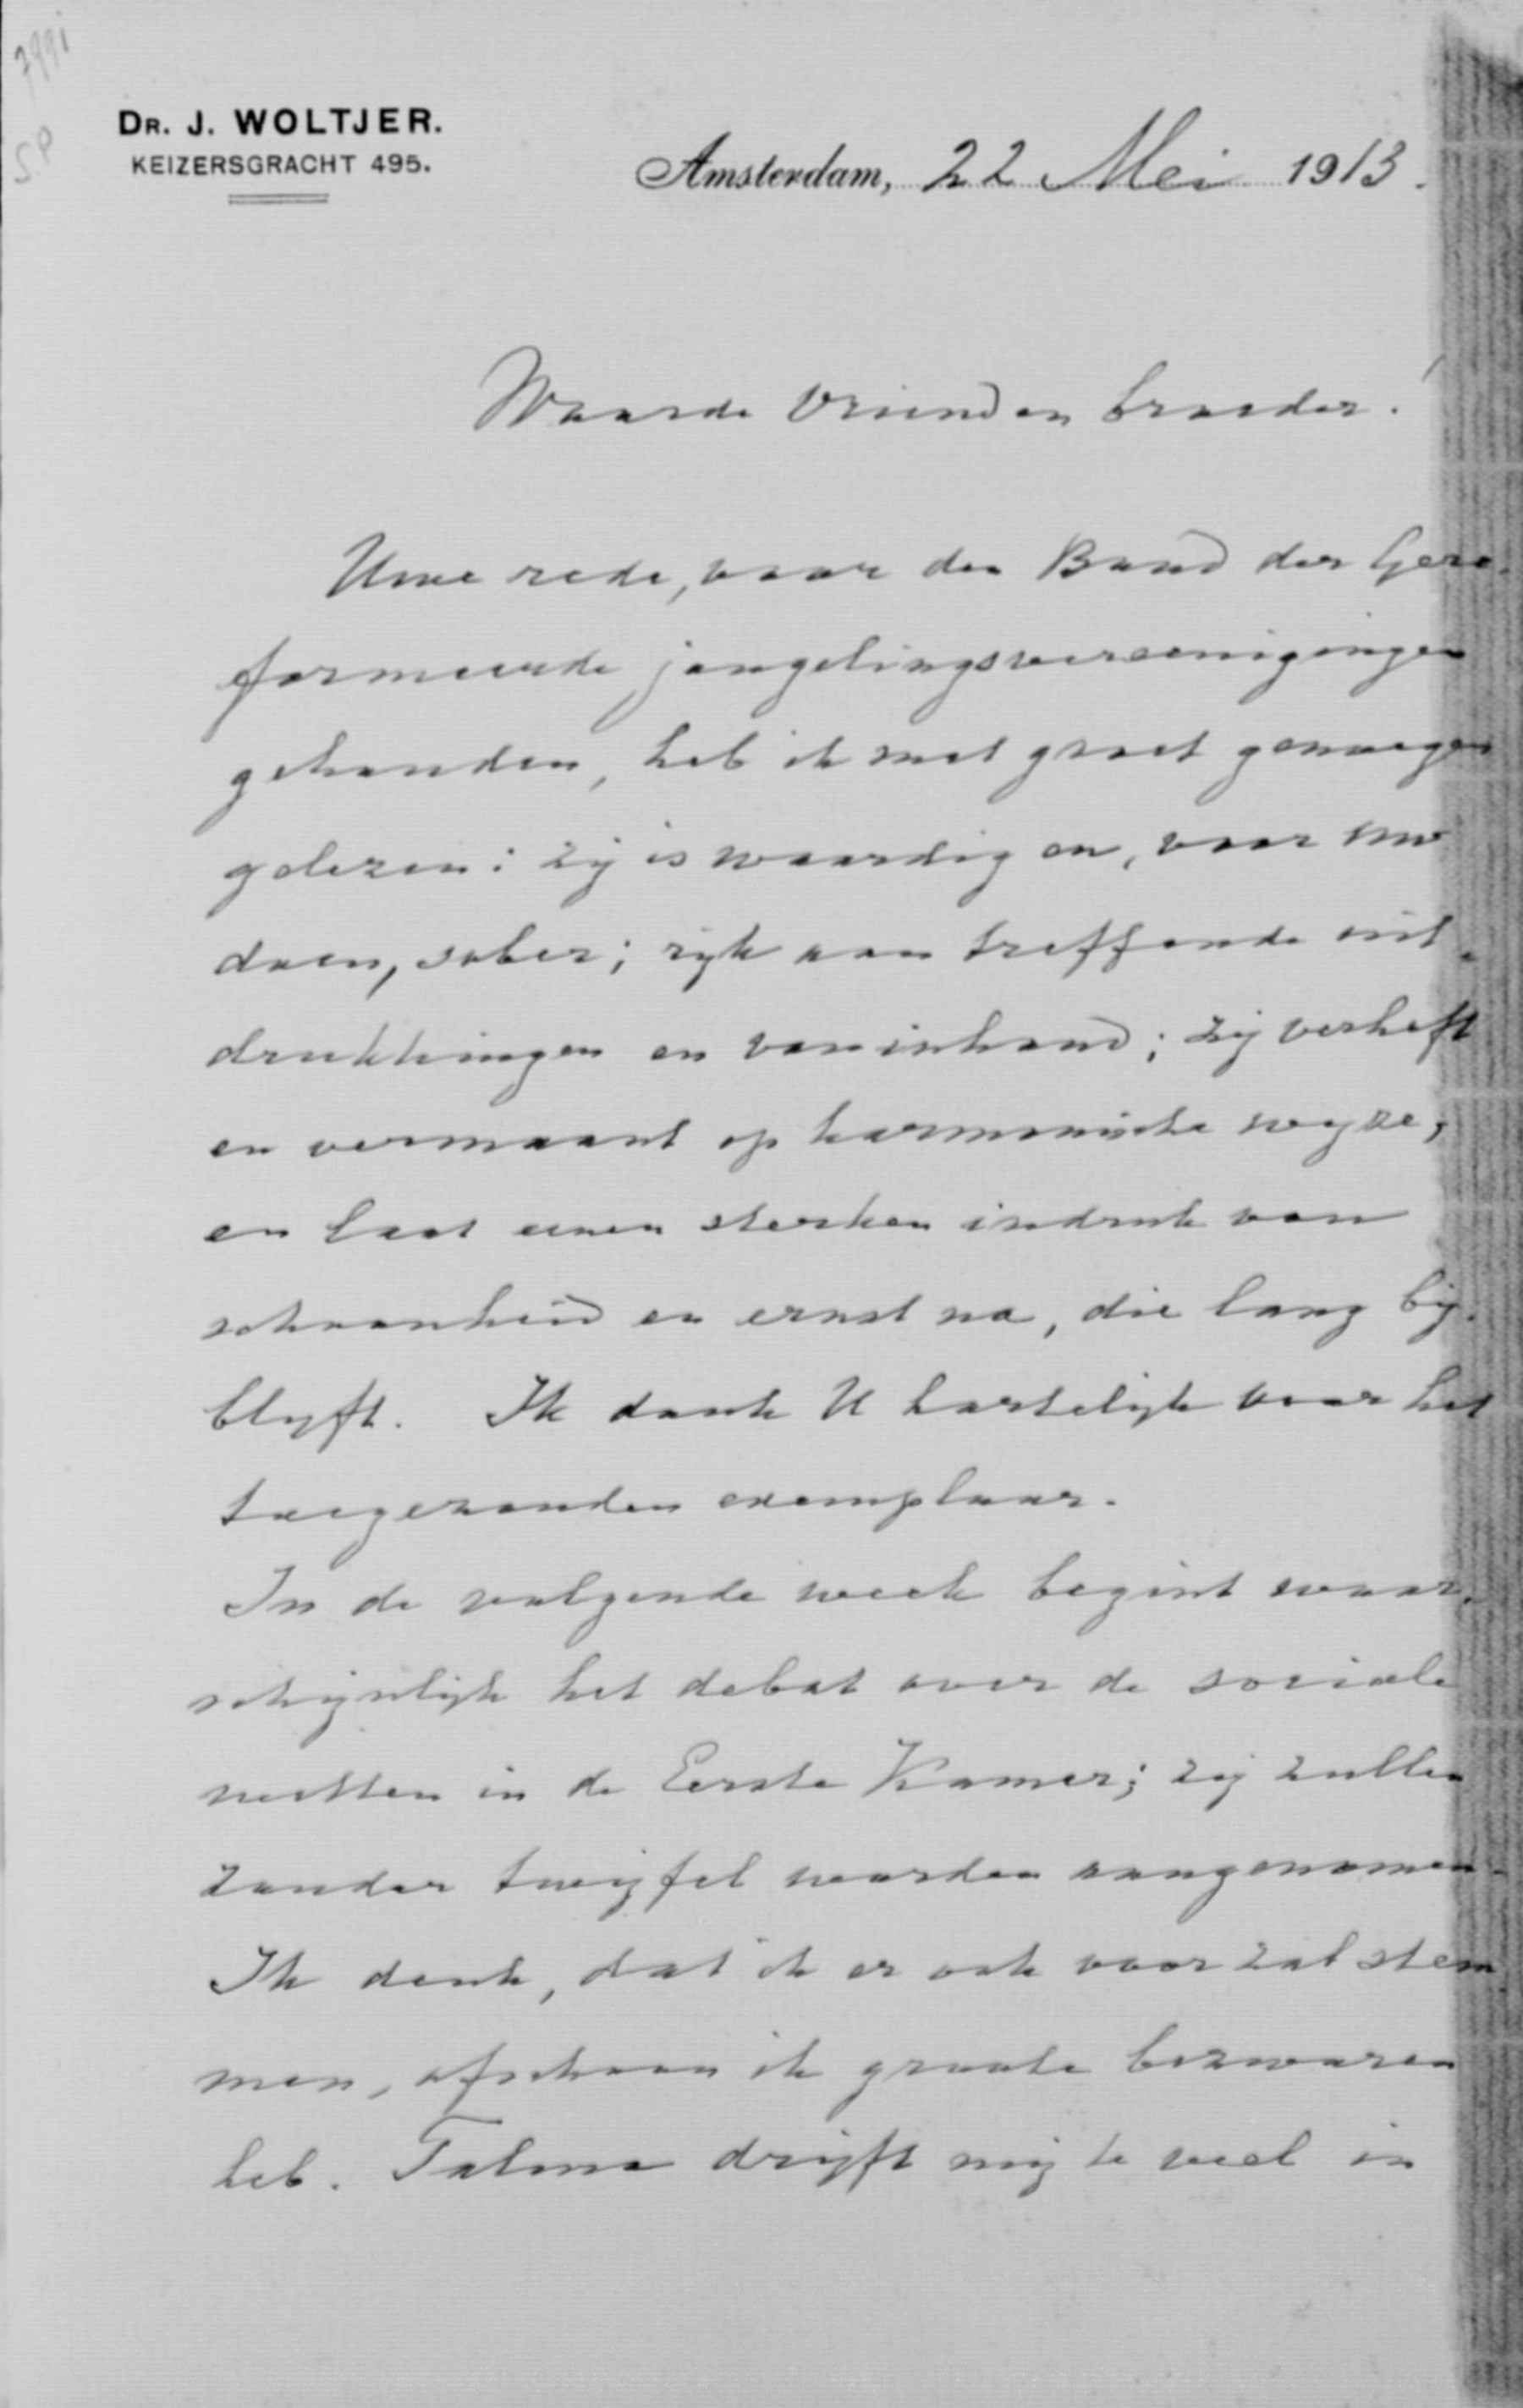 7991
SP
DR. J. WOLTJER.
KEIZERSGRACHT 495.
Amsterdam, 22 Mei 1913.
Waarde Vriend en broeder!
Uwe rede, voor den Bond der Gere-
formeerde jongelingsvereenigingen
gehouden, heb ik met groot genoegen
gelezen: zij is waardig en, voor uw
doen, sober; rijk aan treffende uit-
drukkingen en van inhoud; zij verheft
en vermaant op harmonische wijze,
en laat eenen sterken indruk van
schoonheid en ernst na, die lang bij-
blijft. Ik dank U hartelijk voor het
toegezonden exemplaar.
In de volgende week begint waar-
schijnlijk het debat over de sociale
wetten in de Eerste Kamer; zij zullen
zonder twijfel worden aangenomen.
Ik denk, dat ik er ook voor zal stem-
men, ofschoon ik groote bezwaren
heb. Talma drijft mij te veel in